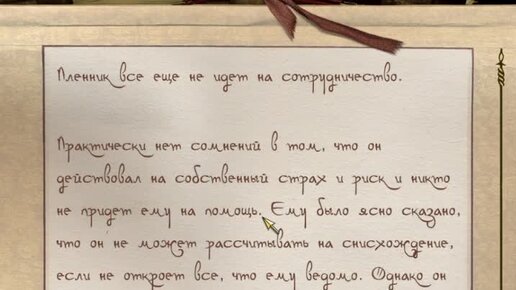 Пленник все еще не идет на сотрудничество.
Практически нет сомнений в том, что он
действовал на собственный страх и риск и никто
не придет ему на помощь. Ему было ясно сказано,
что он не может рассчитывать на снисхождение,
если не откроет все, что ему ведомо. Однако он